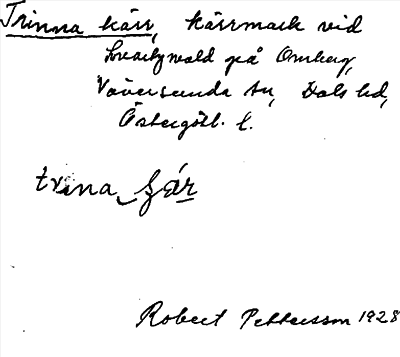 Trinna kärr, kärrmark vid
Svartyvald på Omberg,
Väversunda sn, Dals hd,
Östergötl. l.
trina ɟär
Robert Pettersson 1928